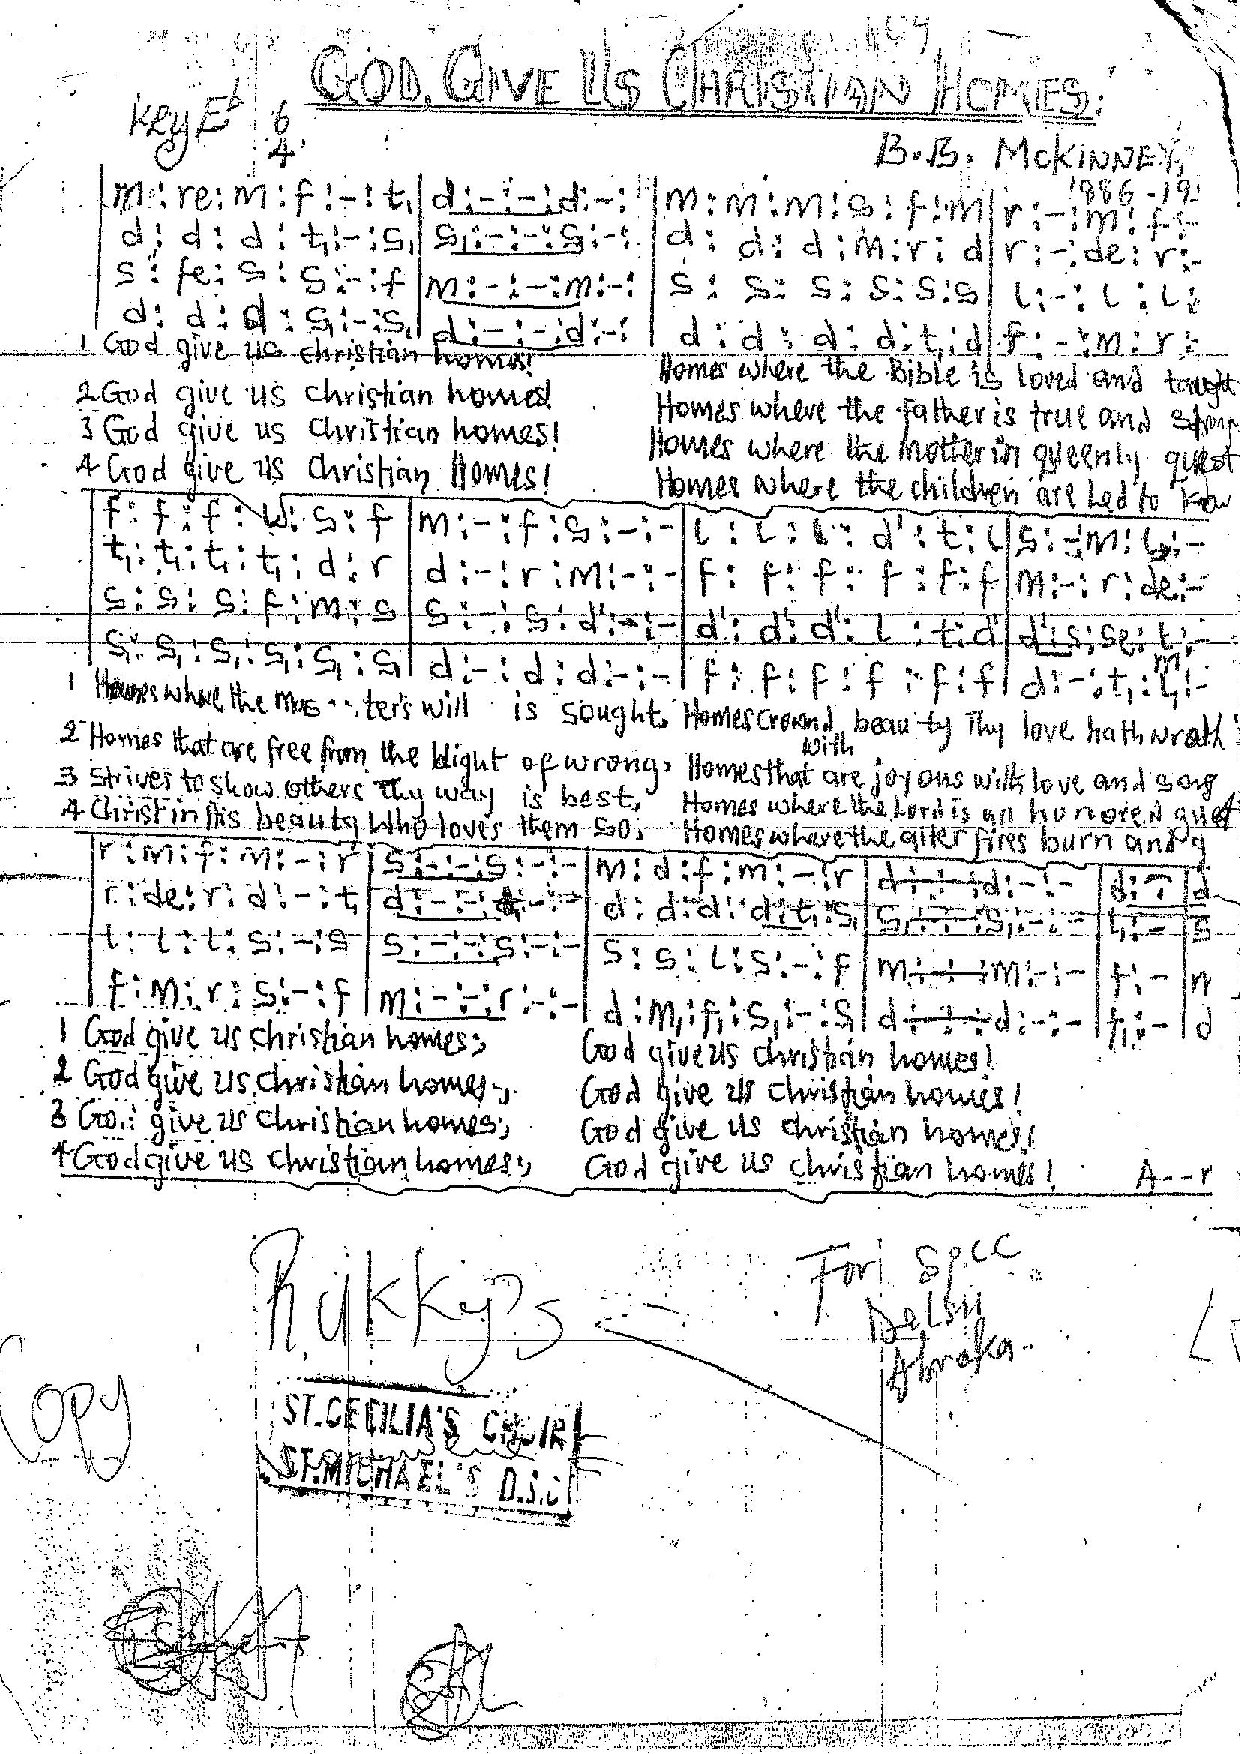 GOD GIVE US CHRISTIAN HOMES.
Key E♭ 6
4
B.B. McKINNEY
1886-19
m : re : m : f : - : t, | d : - : - : d : - : | m : m : m : s : f : m | r : - : m : f : -
d : d : d : t, : - : s, | s, : - : - : s, : - : | d : d : d : m : r : d | r : - : de : r : -
s : fe : s : s : - : f | m : - : - : m : - : | s : s : s : s : s : s | l : - : l : l :
d : d : d : s, : - : s, | d : - : - : d : - : | d : d : d : d : t, : d | f : - : m : r :
1 God give us christian homes! Homes where the Bible is loved and taught
2 God give us christian homes! Homes where the father is true and strong
3 God give us christian homes! Homes where the mother in queenly quest
4 God give us christian Homes! Homes where the children are Led to know
f : f : f : l : s : f | m : - : f : s : - : - | l : l : l : d' : t : l | s : - : m : l : -
t, : t, : t, : t, : d : r | d : - : r : m : - : - | f : f : f : f : f : f | m : - : r : de : -
s : s : s : f : m : s | s : - : s : d' : - : - | d' : d' : d' : l : t : d' | d' : s : se : l : -
s, : s, : s, : s, : s, : s, | d : - : d : d : - : - | f : f : f : f : f : f | d : - : t, : l, : -
1 Homes where the mas - - ter's will is sought. Homes crownd with beau ty Thy love hath wrath
2 Homes that are free from the blight of wrong, Homes that are joyous with love and song
3 Strives to show others Thy way is best, Homes where the Lord is an honored guest
4 Christ in His beauty who loves them so; Homes where the alter fires burn and g
r : m : f : m : - : r | s : - : - : s : - : - | m : d : f : m : - : r | d : - : - : d : - : - | d : - | d
r : de : r : d : - : t, | d : - : - : d : - : - | d : d : d : d : t, : s, | s, : - : - : s, : - : - | t, : - | s
t : l : t : s : - : s | s : - : - : s : - : - | s : s : l : s : - : f | m : - : - : m : - : - | f : - | m
f : m : r : s : - : f | m : - : - : r : - : - | d : m, : f, : s, : - : s, | d : - : - : d : - : - | f, : - | d
1 God give us christian homes; God give us christian homes!
2 God give us christian homes; God give us christian homes!
3 God give us christian homes; God give us christian homes!
4 God give us christian homes; God give us christian homes! A - - r
Rukky's
For SPCC
Delsu
Abraka.
Copy
ST. CECILIA'S CHOIR
ST. MICHAEL'S D.S.C